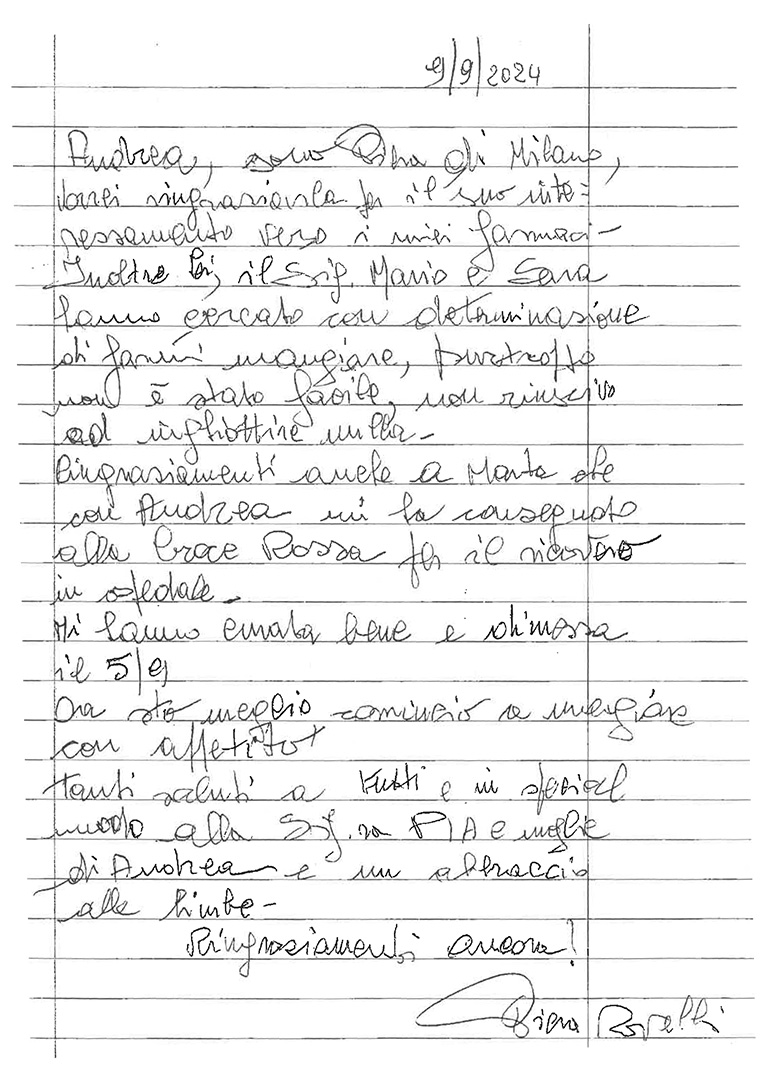 9/9/2024
Andrea, sono Piera di Milano,
vorrei ringraziarla per il suo inte=
ressamento verso i miei farmaci-
Inoltre lei, il Sig. Mario e Sara
hanno cercato con determinazione
di farmi mangiare, purtroppo
non è stato facile, non riuscivo
ad inghiottire nulla-
Ringraziamenti anche a Marta che
con Andrea mi ha consegnato
alla Croce Rossa per il ricovero
in ospedale-
Mi hanno curata bene e dimessa
il 5/9
Ora sto meglio comincio a mangiare
con appetito
Tanti saluti a tutti e in special
modo alla Sig.ra PIA e moglie
di Andrea e un abbraccio
alle bimbe-
Ringraziamenti ancora!
Piera Rovelli